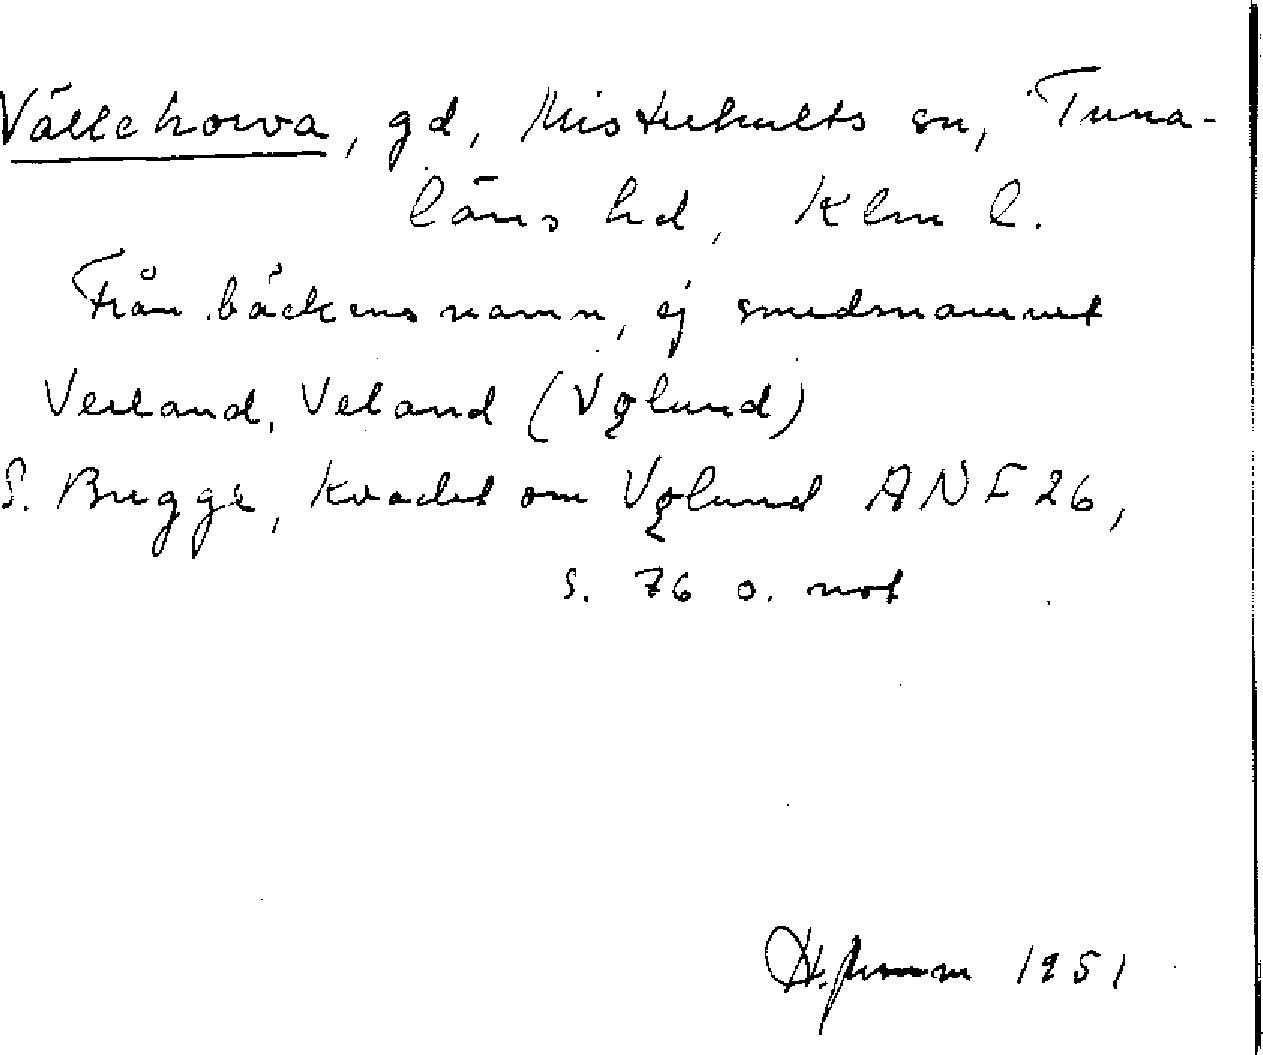 Vällehorva, gd, Misterhults sn, Tuna-
läns hd, Klm l.
Från bäckens namn, ej smednamnet
Verland, Veland (Vǫlund)
S. Bugge, Kvadet om Vǫlund ANF 26,
s. 76 o. not
1951